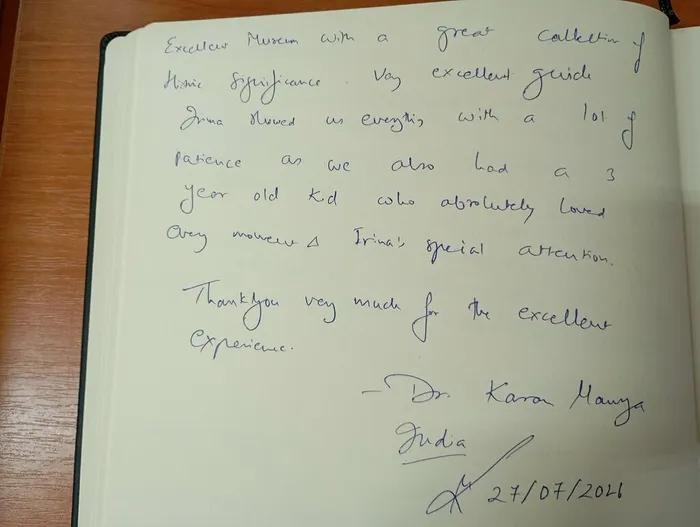 Excellent Museum with a great collection of
Historic Significance. Very excellent guide
Irina showed us everything with a lot of
Patience as we also had a 3
year old kid who absolutely loved
every moment & Irina's special attention.
Thankyou very much for the excellent
experience.
- Dr. Karan
India
27/07/2026